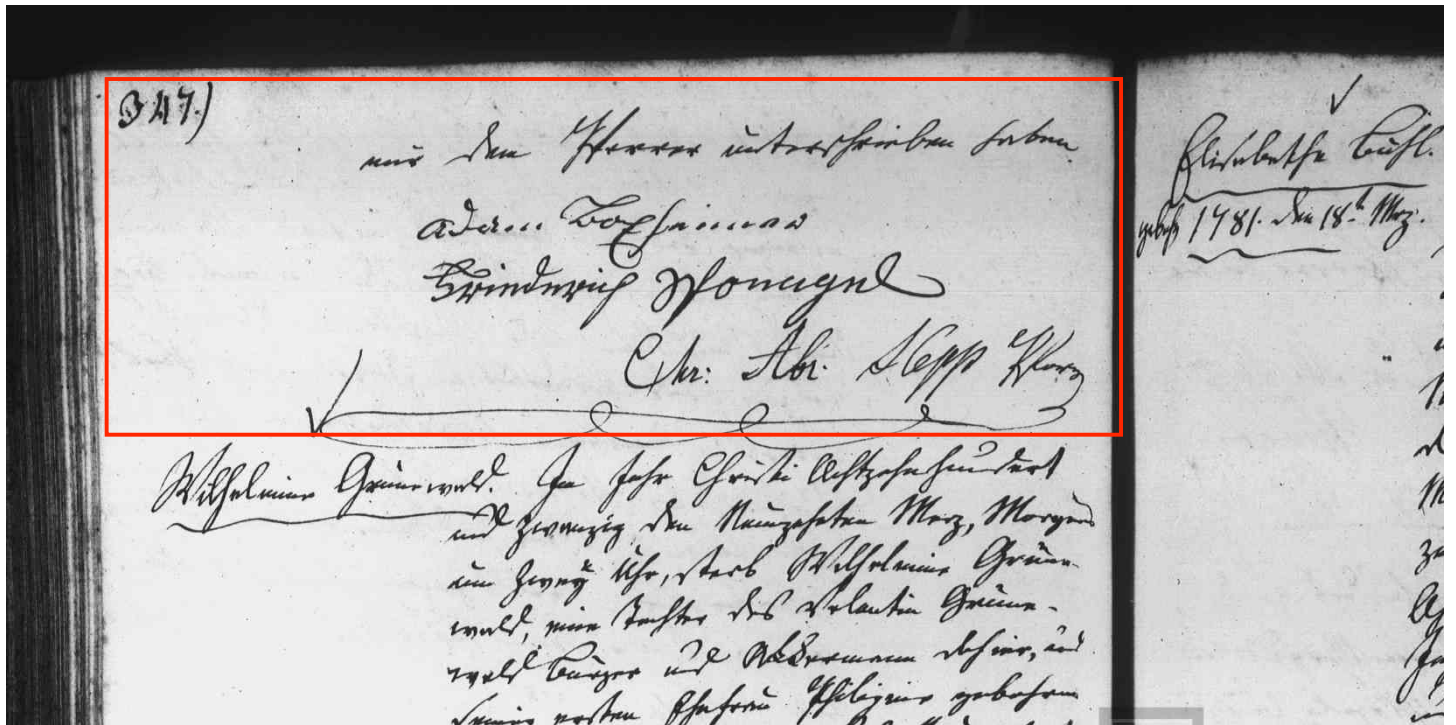 347.)
mir dem Pfarrer unterschrieben haben.
Adam Boxheimer
Friederich Sponagel
Chr: Abr. Kepp Pfarr
Wilhelmine Grünewald. Im Jahr Christi Achtzehnhundert
und zwanzig den Neunzehnten Merz, Morgens
um Zwey Uhr, starb Wilhelmine Grüne-
wald, eine Tochter des Valentin Grüne-
wald Bürger und Akkermann dahier, und
seiner ersten Ehefrau Philipine gebohrne
Elisabetha Bühl.
gebohr 1781. den 18t Merz.